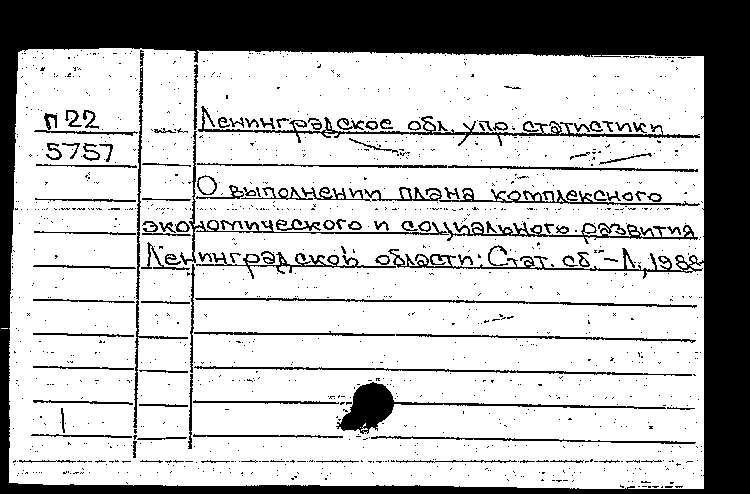 П22 Ленинградское обл. упр. статистики
5757
О выполнении плана комплексного
экономического и социального развития
Ленинградской области: Стат. сб. – Л., 1988